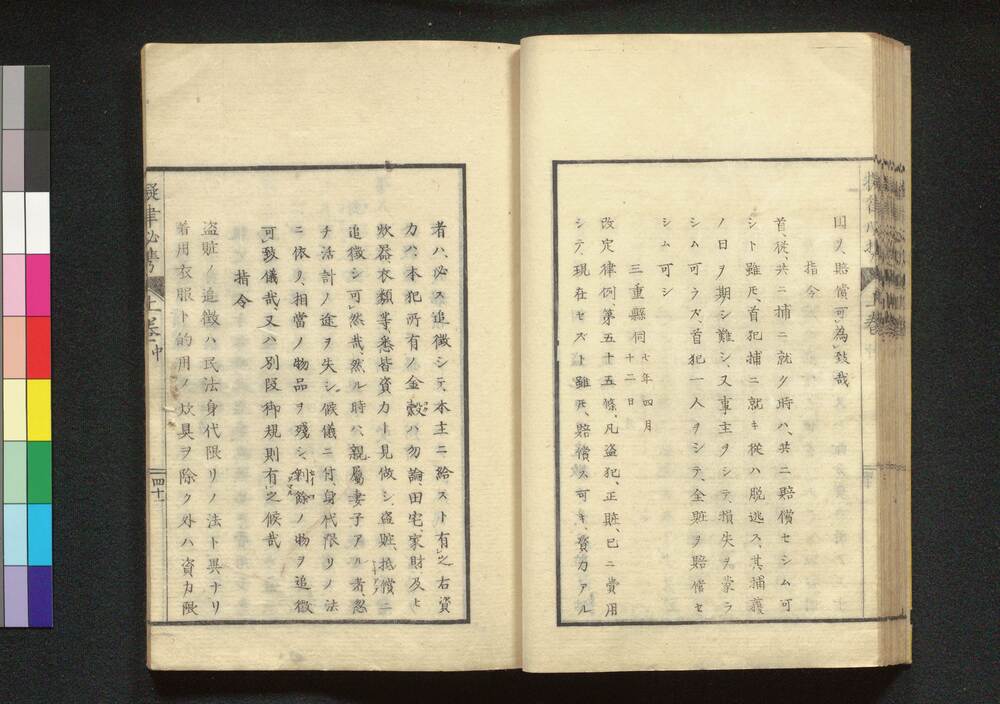 因テ、賠償可」為」致哉
指令
首、從、共ニ捕ニ就ク時ハ、共ニ賠償セシム可
シト雖モ、首犯捕ニ就キ從ハ脱逃ス、其捕獲
ノ日ヲ期シ難シ、又事主ヲシテ、損失ヲ蒙ラ
シム可ラス、首犯一人ヲシテ、全賍ヲ賠償セ
シム可シ
三重縣伺 七年四月十二日
改定律例、第五十五條、凡盗犯、正賍、已ニ費用
シテ、現在セズト雖モ、賠償ス可キ、資力アル
者ハ、必ス追徴シテ、本主ニ給スト有」之右資
力ハ、本犯所有ノ金穀ハ勿論田宅、家財及ヒ
炊器衣類等、悉皆資力ト見做シ、盗賍、抵償ニ
追徴シ可」然哉、然ル時ハ、親屬妻子アル者、忽
チ活計ノ途ヲ失シ候儀ニ付、身代限リノ法
ニ依リ、相當ノ物品ヲ殘シ、剰餘ノ物ヲ追徴
可」致儀哉、又ハ別段御規則有」之候哉
指令
盗賍ノ追徴ハ民法身代限リノ法ト異ナリ
着用衣服ト的用ノ炊具ヲ除ク外ハ資力限
擬律必携 上巻 四十一